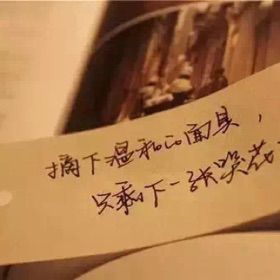 摘下温和的面具，
只剩下一张哭花